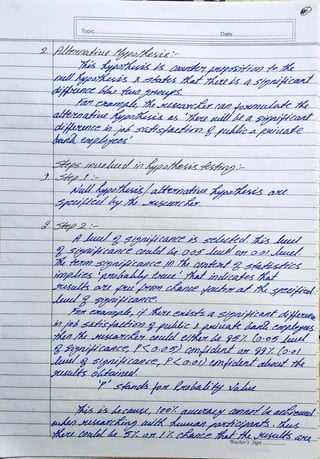 Topic
Date
2. Alternative Hypothesis :-
This hypothesis is counter preposition to the
null hypothesis & states that there is a significant
difference b/w two groups.
For example the researcher can formulate the
alternative hypothesis as 'there will be a significant
difference in job satisfaction of public & private
bank employees'
Steps involved in hypothesis testing :-
1. Step 1 :-
Null hypothesis / alternative hypothesis are
specified by the researcher.
2. Step 2 :-
A level of significance is selected this level
of significance could be 0.05 level or 0.01 level
the term significance in the context of statistics
implies 'probably true' that indicates that
results are free from chance factor at the specified
level of significance.
For example, if there exists a significant difference
in job satisfaction of public & private bank employees
then the researcher could either be 95% (0.05 level
of significance, P<0.05) confident or 99% (0.01
level of significance, P<0.01) confident about the
results obtained.
'P' stands for Probality value
This is because, 100% accuracy cannot be achieved
when researching with human participants. Thus
there could be 5% or 1% chance that the results are
Teacher's Sign